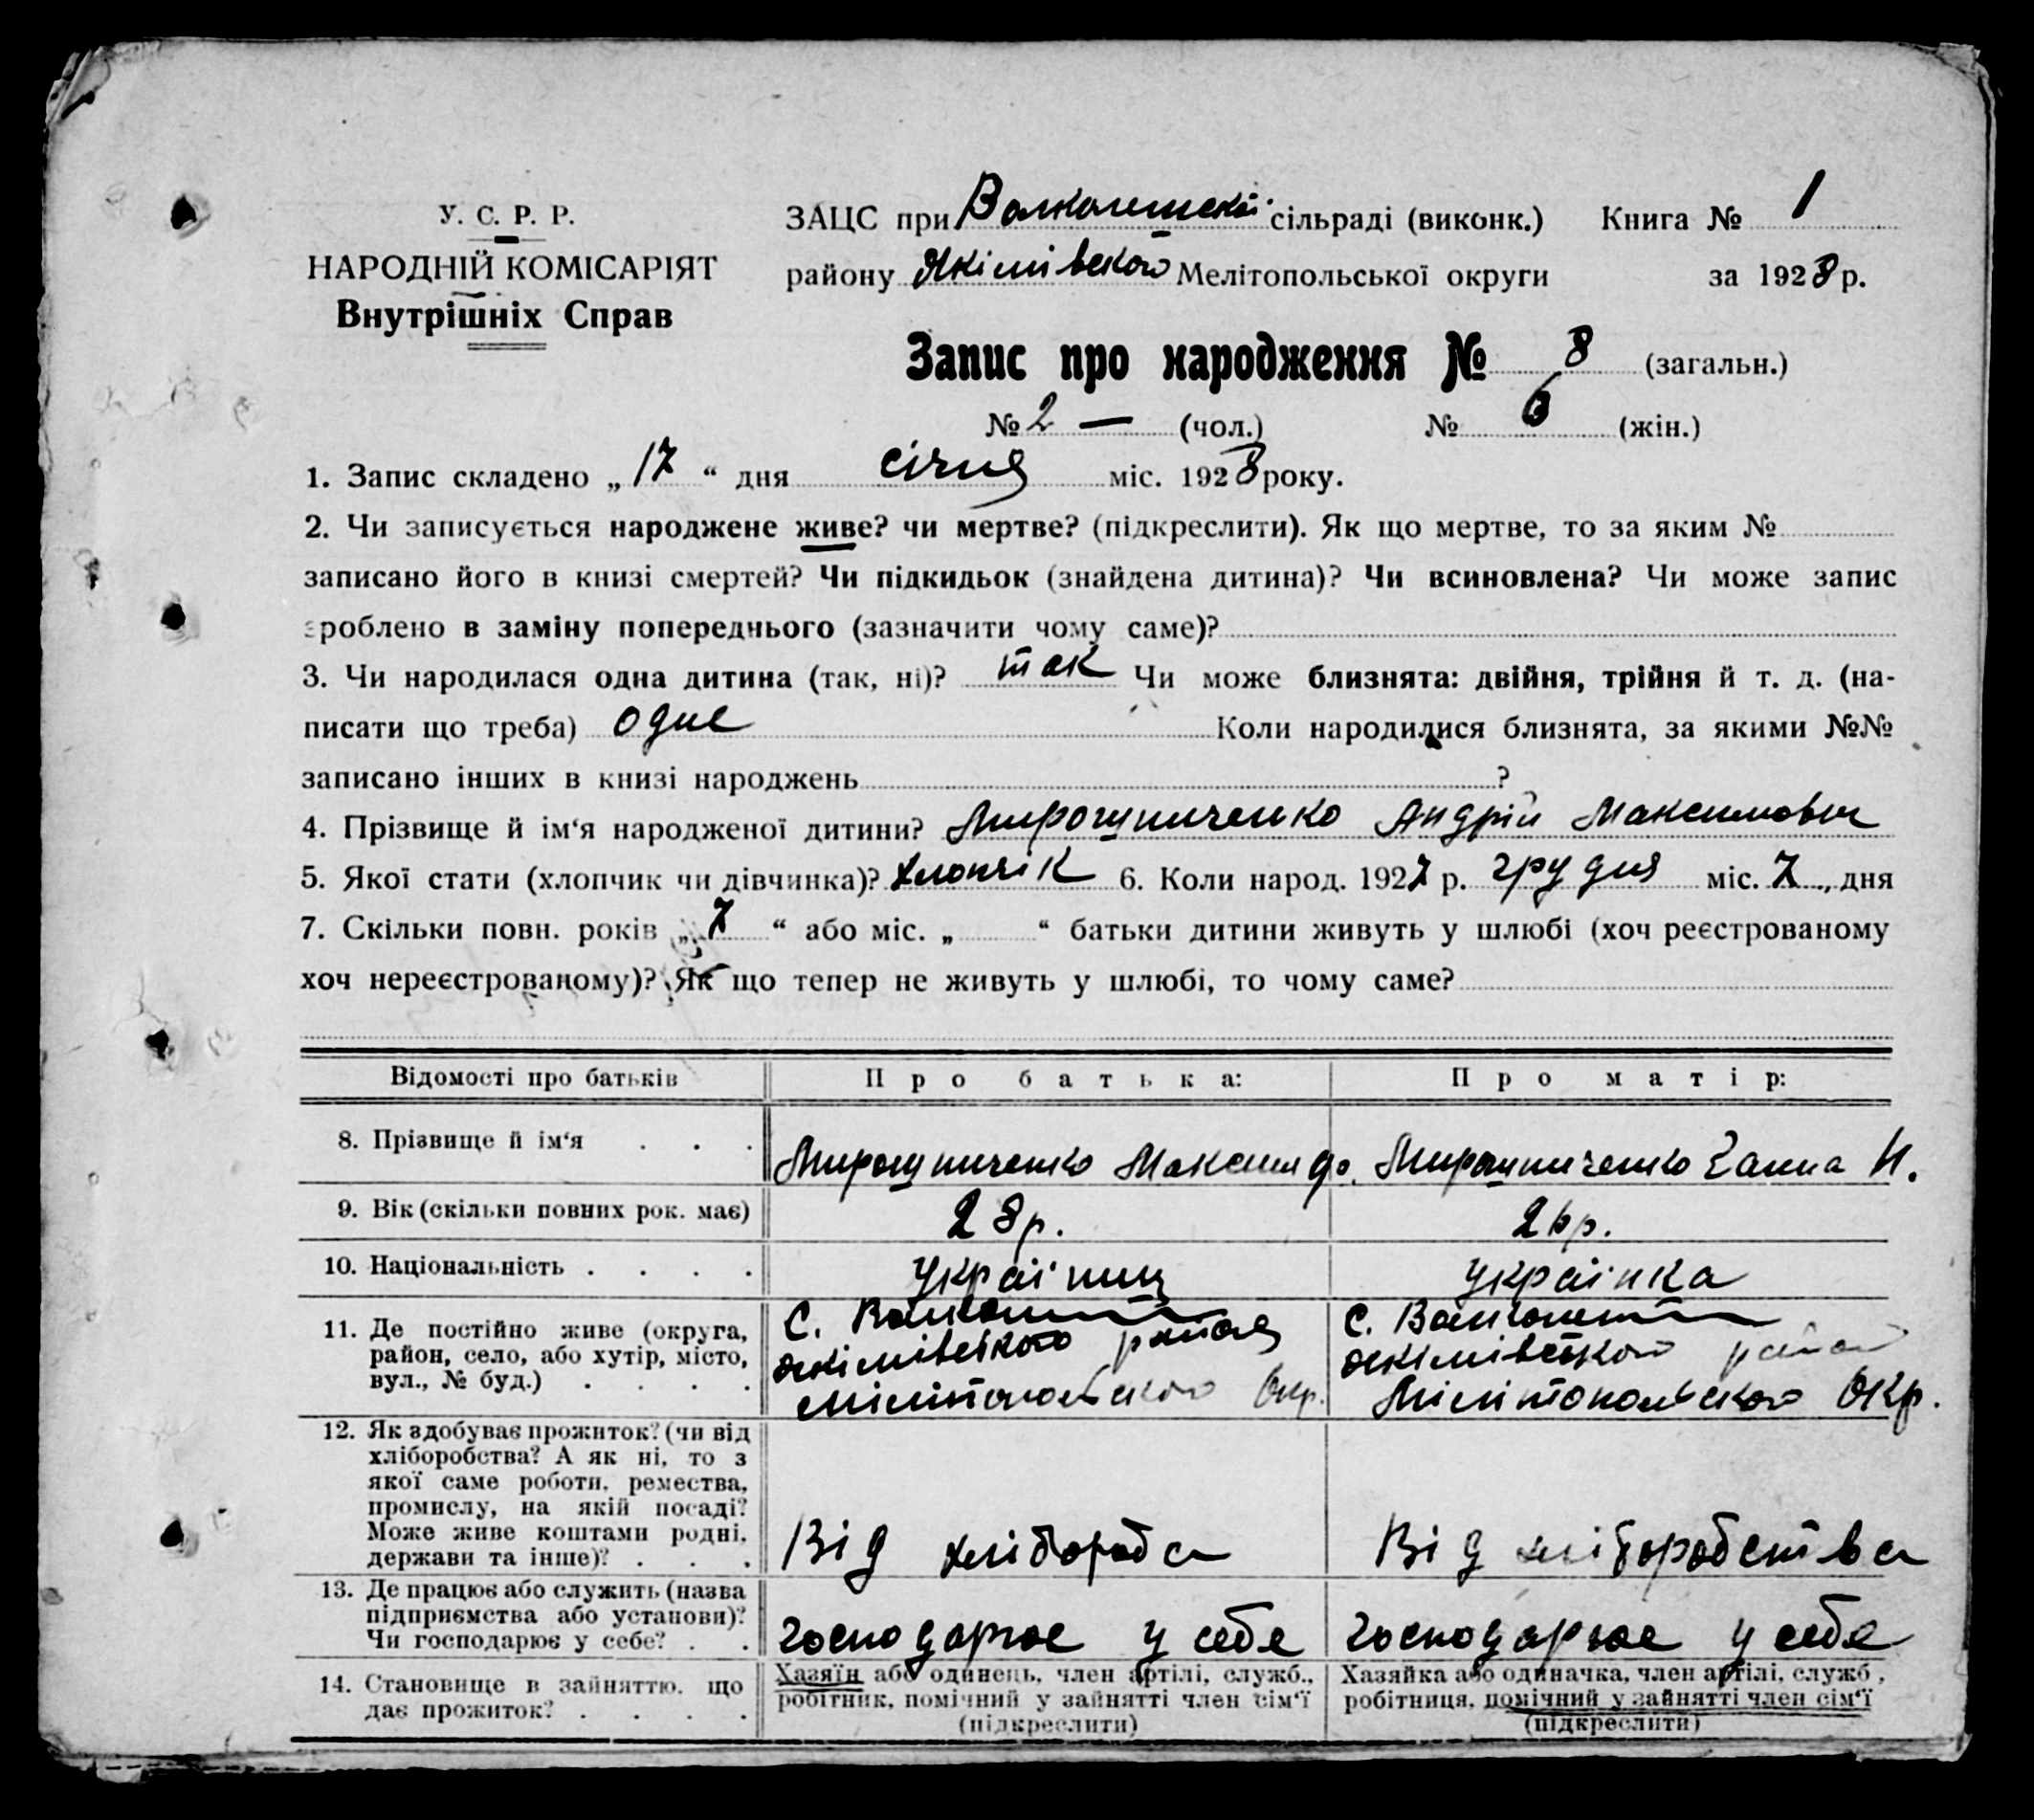 У. С. Р. Р.
НАРОДНІЙ КОМІСАРІЯТ
Внутрішніх Справ
ЗАЦС при сільраді (виконк.) Книга № 1
району Якімівського Мелітопольської округи за 1928 р.
Запис про народження № 8 (загальн.)
№ 2 — (чол.) № 6 (жін.)
1. Запис складено „ 17 “ дня січня міс. 1928 року.
2. Чи записується народжене живе? чи мертве? (підкреслити). Як що мертве, то за яким №
записано його в книзі смертей? Чи підкидьок (знайдена дитина)? Чи всиновлена? Чи може запис
зроблено в заміну попереднього (зазначити чому саме)?
3. Чи народилася одна дитина (так, ні)? так Чи може близнята: двійня, трійня й т. д. (на-
писати що треба) одне Коли народилися близнята, за якими №№
записано інших в книзі народжень ?
4. Прізвище й ім‘я народженої дитини? Мирошниченко Андрій Максимович
5. Якої стати (хлопчик чи дівчинка)? хлопчік 6. Коли народ. 1927 р. грудня міс. 7 „ дня
7. Скільки повн. років „ 7 “ або міс. „ “ батьки дитини живуть у шлюбі (хоч реєстрованому
хоч нереєстрованому)? Як що тепер не живуть у шлюбі, то чому саме?
Відомості про батьків Про батька: Про матір:
8. Прізвище й ім‘я . . . Мирошниченко Максим До. Мирошниченко Ганна Н.
9. Вік (скільки повних рок. має) 28 р. 26 р.
10. Національність . . . . Україниц Українка
11. Де постійно живе (округа, С. С.
район, село, або хутір, місто, Якімівського району Якімівського району
вул., № буд.) . . . . Мілітопольського Окр. Мілітопольського Окр.
12. Як здобуває прожиток? (чи від
хліборобства? А як ні, то з
якої саме роботи, ремества,
промислу, на якій посаді?
Може живе коштами родні,
держави та інше)? . . . Від хлібороба Від хліборобства
13. Де працює або служить (назва
підприємства або установи)?
Чи господарює у себе? . . господарює у себе господарює у себе
14. Становище в зайняттю, що
дає прожиток? . . . .
Хазяїн або одинець, член артілі, служб., Хазяйка або одиначка, член артілі, служб,
робітник, помічний у зайнятті член сім‘ї робітниця, помічний у зайнятті член сім‘ї
(підкреслити) (підкреслити)